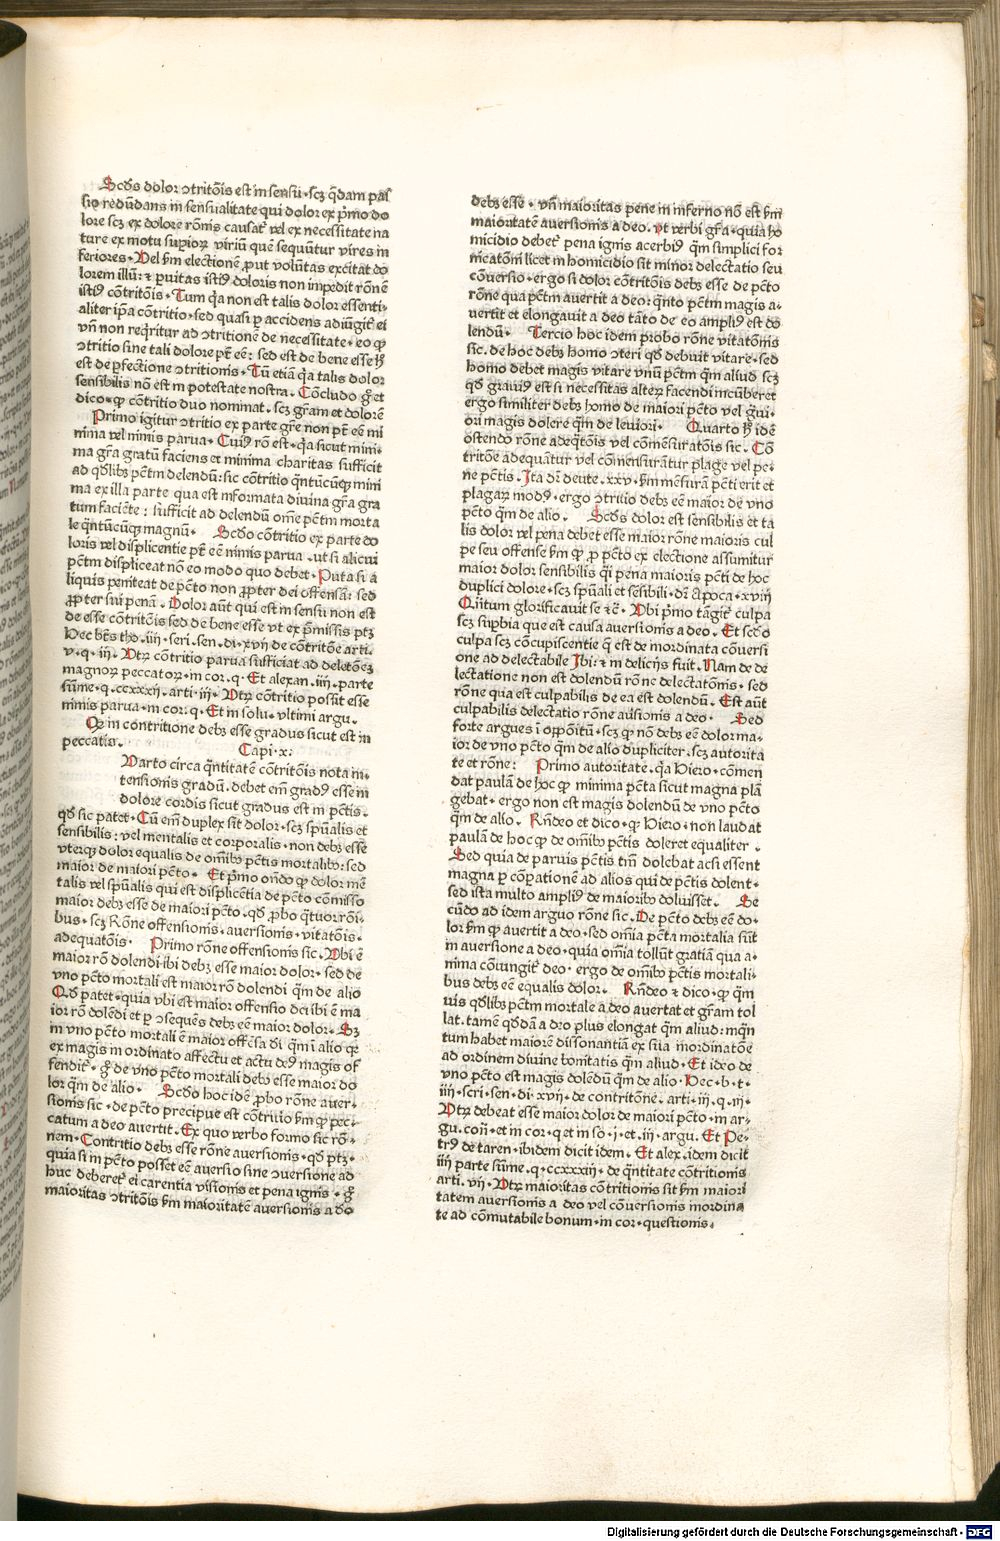 Scd̄s dolor ɔtritōis est in sensu · scꝫ q̄dam pas
sio redūdans in sensualitate qui dolor ex pͥmo do
lore scꝫ ex dolore rōnis causat᷑ vel ex necessitate na
ture ex motu supioꝝ viriū que sequūtur vires in
feriores · Vel ẜm electionē ꝓut volūtas excitat do
lorem illū: ⁊ ꝑuitas istiꝰ doloris non impedit rōnē
istiꝰ cōtritōis · Tum qꝛ non est talis dolor essenti-
aliter ip̄a cōtritio · sed quasi ꝑ accidens adiūgit᷑ ei
vn̄ non reqͥritur ad ɔtritionē de necessitate · eo ꝙ
ɔtritio sine tali dolore pt̄ eē : sed est de bene esse hꝫ
est de ꝑfectione ɔtritionis · Tū etiā qꝛ talis dolor
sensibilis nō est in potestate nostra · Cōcludo gͦ et
dico · ꝙ cōtritio duo nominat · scꝫ gr̄am et dolorē
Primo igitur ɔtritio ex parte gr̄e non pt̄ eē mi
nima vel nimis parua · Cuiꝰ rō est · qꝛ sicut mini-
ma gr̄a gratū faciens et minima charitas sufficit
ad qd̄libꝫ pctm̄ delendū: sic cōtritio qͣntūcūqꝫ mini
ma ex illa parte qua est informata diuina gr̄a gra
tum faciēte: sufficit ad delendū om̄e pctm̄ morta
le qͣntūcūqꝫ magnū · Scd̄o cōtritio ex parte do
loris vel displicentie pt̄ eē nimis parua · ut si alicui
pctm̄ displiceat nō eo modo quo debet · Puta si a
liquis peniteat de pctō non ꝓpter dei offensā: sed
ꝓpter sui penā · Dolor aūt qui est in sensu non est
de esse cōtritōis sed de bene esse vt ex pͥmissis ptꝫ
Hec btūs tho · iiij · scri · sen · di · xvij de cōtritōe arti ·
v · q · iij · Vtꝝ cōtritio parua sufficiat ad deletōeꝫ
magnoꝝ peccatoꝝ · in cor · q · Et alexan · iiij · parte
sūme · q · ccxxxij · arti · iij · Vtꝝ cōtritio possit esse
nimis parua · in cor: q · Et in solu · vltimi argu ·
Qꝙ in contritione debꝫ esse gradus sicut est in
peccatis · Capi · x:
Uarto circa qͣntitatē cōtritōis nota in-
tensionis gradū · debet em̄ gradꝰ esse in
dolore cordis sicut gradus est in pctīs ·
qd̄ sic patet · Cū em̄ duplex sit dolor · scꝫ spūalis et
sensibilis: vel mentalis et corporalis · non debꝫ esse
vterqꝫ dolor equalis de om̄ibꝰ pctīs mortalibꝰ: sed
maior de maiori pctō · Et pͥmo on̄do ꝙ dolor mē
talis vel spūalis qui est displicētia de pctō cōmisso
maior debꝫ esse de maiori pctō · qd̄ ꝓbo qͣtuor rōi-
bus · scꝫ Rōne offensionis · auersionis · vitatōis ·
adequatōis · Primo rōne offensionis sic · Vbi ē
maior rō dolendi ibi debꝫ esse maior dolor · sed de
vno pctō mortali est maior rō dolendi qm̄ de alio
Qd̄ patet · quia vbi est maior offensio dei ibi ē ma
ior rō dolēdi et ꝑ ɔsequēs debꝫ eē maior dolor · Sꝫ
in vno pctō mortali ē maior offēsa dī qm̄ ī alio qꝛ
ex magis inordinato affectu et actu deꝰ magis of
fendit᷑ · gͦ de vno pctō mortali debꝫ esse maior do
lor qm̄ de alio · Scd̄o hoc idē ꝓbo rōne auer-
sionis sic · de pctō precipue est cōtritio ẜm ꝙ pec-
catum a deo auertit · Ex quo verbo formo sic rō-
nem · Contritio debꝫ esse rōne auersionis · qd̄ ptꝫ ·
quia si in pctō posset eē auersio sine ɔuersione ad
huc deberet᷑ ei carentia visionis et pena ignis · gͦ
maioritas ɔtritōis ẜm maioritatē auersionis a do
debꝫ esse · vn̄ maioritas pene in inferno nō est ẜm
maioritatē auersionis a deo · vt verbi gr̄a · quia ho
micidio debet᷑ pena ignis acerbiꝰ qm̄ simplici for
nicatōi licet in homicidio sit minor delectatio seu
cōuersio · ergo si dolor cōtritōis debꝫ esse de pctō
rōne qua pctm̄ auertit a deo: qͣnto pctm̄ magis a-
uertit et elongauit a deo tāto de eo ampliꝰ est do
lendū · Tercio hoc idem probo rōne vitatōnis
sic · de hoc debꝫ homo ɔteri qd̄ debuit vitare · sed
homo debet magis vitare vnū pctm̄ qm̄ aliud scꝫ
qd̄ grauiꝰ est si necessitas alteꝝ faciendi incūberet
ergo similiter debꝫ homo de maiori pctō vel gͣui-
ori magis dolere qm̄ de leuiori · Quarto h̄ idē
ostendo rōne adeqͣtōis vel cōmensuratōis sic · Cō
tritōe adequātur vel cōmensurātur plage vel pe-
ne pctīs · Ita dr̄ deute · xxv · ẜm mēsurā pcti erit et
plagaꝝ modꝰ · ergo ɔtritio debꝫ eē maior de vno
pctō qm̄ de alio · Scd̄s dolor est sensibilis et ta
lis dolor vel pena debet esse maior rōne maioris cul
pe seu offense ẜm ꝙ ꝓ pctō ex electione assumitur
maior dolor sensibilis qͣi pena maioris pcti de hoc
duplici dolore · scꝫ spūali et sēsibili · dr̄ Apoca · xviij
Qͣntum glorificauit se ⁊cͣ · Vbi pͥmo tāgit᷑ culpa
scꝫ supbia que est causa auersionis a deo · Et scd̄o
culpa scꝫ cōcupiscentie que est de inordinata cōuersi
one ad delectabile Ibi: ⁊ in delicijs fuit · Nam de de
lectatione non est dolendū rōne delectatōnis · sed
rōne qua est culpabilis de ea est dolendū · Est aūt
culpabilis delectatio rōne aūsionis a deo · Sed
forte argues ī oppōitū · scꝫ ꝙ nō debꝫ eē dolor ma-
ior de vno pctō qm̄ de alio dupliciter · scꝫ autorita
te et rōne: Primo autoritate · qꝛ Hiero · cōmen
dat paulā de hoc ꝙ minima pctā sicut magna plā
gebat · ergo non est magis dolendū de vno pctō
qm̄ de alio · Rn̄deo et dico · ꝙ Hiero · non laudat
paulā de hoc ꝙ de om̄ibꝰ pctīs doleret equaliter ·
Sed quia de paruis pctīs tm̄ dolebat acsi essent
magna ꝑ cōꝑationē ad alios qui de pctīs dolent ·
sed ista multo ampliꝰ de maioribꝰ doluisset · Se
cūdo ad idem arguo rōne sic · De pctō debꝫ eē do-
lor ẜm ꝙ auertit a deo · sed om̄ia pctā mortalia sūt
in auersione a deo · quia om̄ia tollūt gratiā qua a-
nima cōiungit᷑ deo · ergo de om̄ibꝰ pctīs mortali-
bus debꝫ eē equalis dolor · Rn̄deo ⁊ dico · ꝙ qm̄
uis qd̄libꝫ pctm̄ mortale a deo auertat et gr̄am tol
lat · tamē qd̄dā a deo plus elongat qm̄ aliud: inqͣn
tum habet maiorē dissonantiā ex sua inordinatōe
ad ordinem diuine bonitatis qm̄ aliud · Et ideo de
vno pctō est magis dolēdū qm̄ de alio · Hec · b · t ·
iiij · scri · sen · di · xvij · de contritōne · arti · iij · q · iij ·
Vtꝝ debeat esse maior dolor de maiori pctō · in ar-
gu · con̄ · et in cor · q et in so · j · et · iij · argu · Et Pe-
trꝰ de taren · ibidem dicit idem · Et alex · idem dicit
iiij parte sūme · q · ccxxxij · de qͣntitate cōtritionis
arti · vij · Vtꝝ maioritas cōtritionis sit ẜm maiori
tatem auersionis a deo vel cōuersionis inordina
te ad cōmutabile bonum · in cor · questionis ·
Digitalisierung gefördert durch die Deutsche Forschungsgemeinschaft - DFG